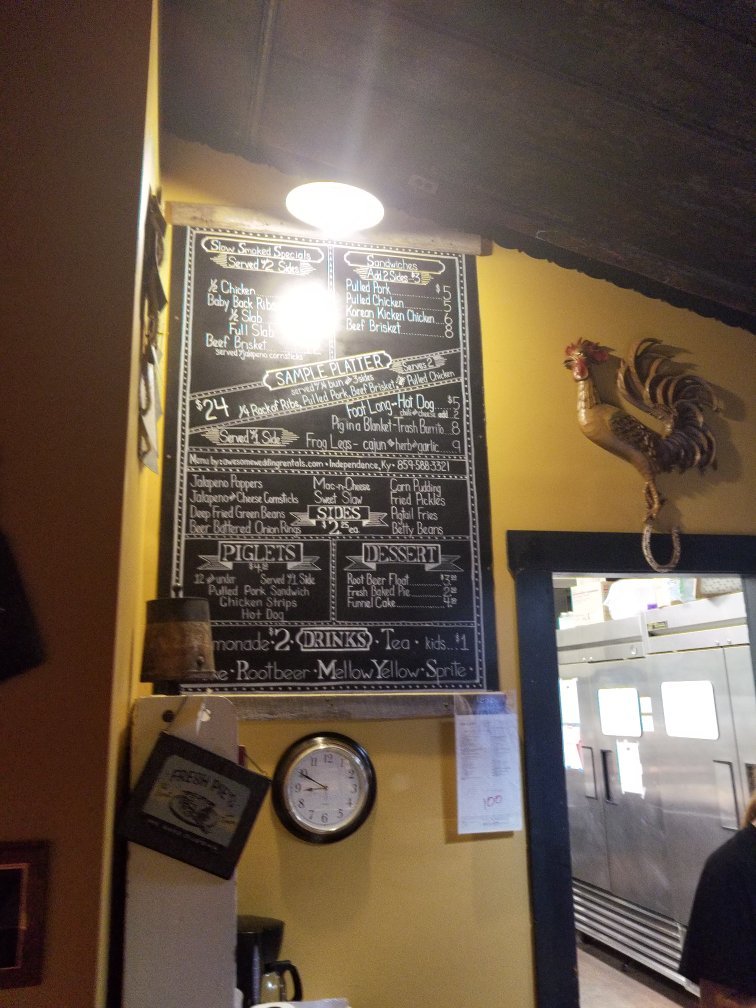 Slow Smoked Specials
Served w/2 Sides
½ Chicken
Baby Back Ribs
½ Slab
Full Slab
Beef Brisket
served w/jalapeno cornsticks
Sandwiches
Add 2 Sides $3
Pulled Pork $5
Pulled Chicken 5
Korean Kicken Chicken 6
Beef Brisket 8
SAMPLE PLATTER
Serves 2
served w/ bun and 3 sides
$24 ¼ Rack of Ribs, Pulled Pork, Beef Brisket Pulled Chicken
Foot Long Hot Dog $5
chili and cheese add 2
Pig in a Blanket-Trash Burrito 8
Served w/1 Side
Frog Legs - cajun or herb and garlic 9
Menu by: awesomeweddingrentals.com • Independence, Ky • 859-588-3321
Jalapeno Poppers
Jalapeno and Cheese Cornsticks
Deep Fried Green Beans
Beer Battered Onion Rings
Mac-n-Cheese
Sweet Slaw
SIDES
$2.25 ea.
Corn Pudding
Fried Pickles
Pigtail Fries
Betty Beans
PIGLETS
12 and under Served w/1 Side
Pulled Pork Sandwich
Chicken Strips
Hot Dog
DESSERT
Root Beer Float
Fresh Baked Pie
Funnel Cake
monade $2 • DRINKS • Tea • kids... $1
ke • Rootbeer • Mellow Yellow • Sprite •
FRESH PIE'S
12
1
2
3
4
5
6
7
8
9
10
11
100